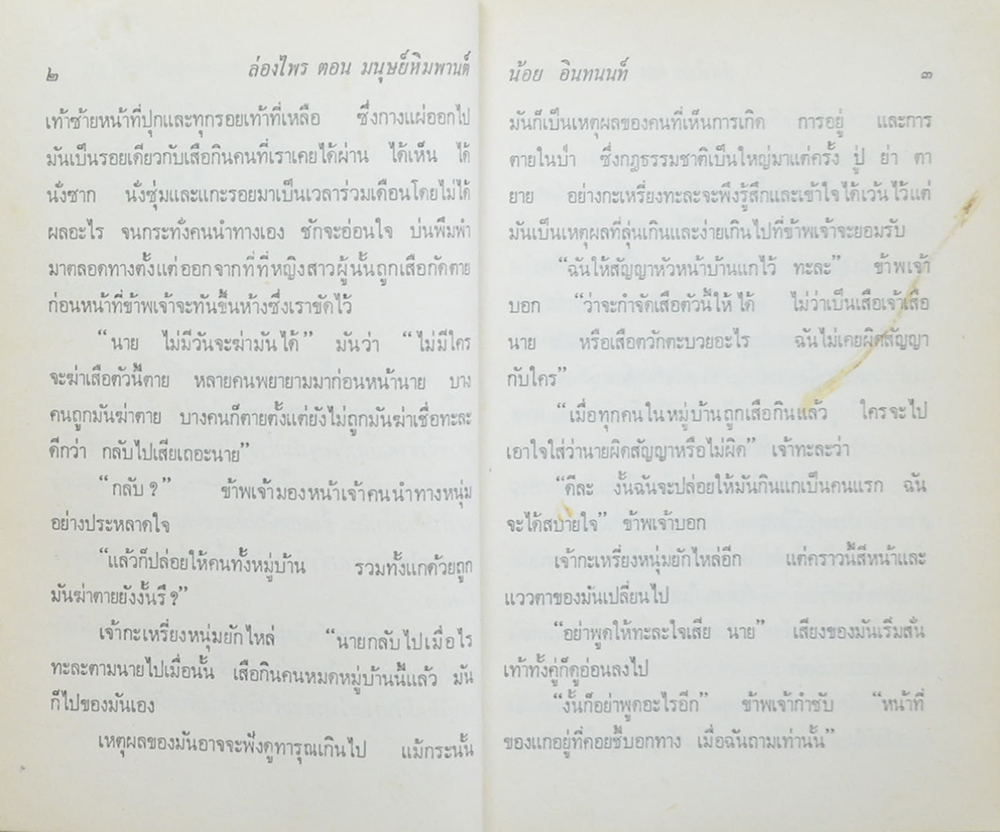 ๒ ล่องไพร ตอน มนุษย์หิมพานต์
เท้าซ้ายหน้าที่ปุกและทุกรอยเท้าที่เหลือ ซึ่งกางแผ่ออกไป
มันเป็นรอยเดียวกับเสือกินคนที่เราเคยได้ผ่าน ได้เห็น ได้
นั่งซาก นั่งซุ่มและแกะรอยมาเป็นเวลาร่วมเดือนโดยไม่ได้
ผลอะไร จนกระทั่งคนนำทางเอง ชักจะอ่อนใจ บ่นพึมพำ
มาตลอดทางตั้งแต่ออกจากที่ที่หญิงสาวผู้นั้นถูกเสือกัดตาย
ก่อนหน้าที่ข้าพเจ้าจะทันขึ้นห้างซึ่งเราขัดไว้
“นาย ไม่มีวันจะฆ่ามันได้” มันว่า “ไม่มีใคร
จะฆ่าเสือตัวนี้ตาย หลายคนพยายามมาก่อนหน้านาย บาง
คนถูกมันฆ่าตาย บางคนก็ตายตั้งแต่ยังไม่ถูกมันฆ่าเชื่อทะละ
ดีกว่า กลับไปเสียเถอะนาย”
“กลับ ?” ข้าพเจ้ามองหน้าเจ้าคนนำทางหนุ่ม
อย่างประหลาดใจ
“แล้วก็ปล่อยให้คนทั้งหมู่บ้าน รวมทั้งแกด้วยถูก
มันฆ่าตายยังงั้นรึ ?”
เจ้ากะเหรี่ยงหนุ่มยักไหล่ “นายกลับไปเมื่อไร
ทะละตามนายไปเมื่อนั้น เสือกินคนหมดหมู่บ้านนี้แล้ว มัน
ก็ไปของมันเอง
เหตุผลของมันอาจจะฟังดูทารุณเกินไป แม้กระนั้น
น้อย อินทนนท์ ๓
มันก็เป็นเหตุผลของคนที่เห็นการเกิด การอยู่ และการ
ตายในป่า ซึ่งกฎธรรมชาติเป็นใหญ่มาแต่ครั้ง ปู่ ย่า ตา
ยาย อย่างกะเหรี่ยงทะละจะพึงรู้สึกและเข้าใจได้เว้นไว้แต่
มันเป็นเหตุผลที่ลุ่นเกินและง่ายเกินไปที่ข้าพเจ้าจะยอมรับ
“ฉันให้สัญญาหัวหน้าบ้านแกไว้ ทะละ” ข้าพเจ้า
บอก “ว่าจะกำจัดเสือตัวนี้ให้ได้ ไม่ว่าเป็นเสือเจ้าเสือ
นาย หรือเสือตวักตะบวยอะไร ฉันไม่เคยผิดสัญญา
กับใคร”
“เมื่อทุกคนในหมู่บ้านถูกเสือกินแล้ว ใครจะไป
เอาใจใส่ว่านายผิดสัญญาหรือไม่ผิด” เจ้าทะละว่า
“ดีละ งั้นฉันจะปล่อยให้มันกินแกเป็นคนแรก ฉัน
จะได้สบายใจ” ข้าพเจ้าบอก
เจ้ากะเหรี่ยงหนุ่มยักไหล่อีก แต่คราวนี้สีหน้าและ
แววตาของมันเปลี่ยนไป
“อย่าพูดให้ทะละใจเสีย นาย” เสียงของมันเริ่มสั่น
เท้าทั้งคู่ก็ดูอ่อนลงไป
“งั้นก็อย่าพูดอะไรอีก” ข้าพเจ้ากำชับ “หน้าที่
ของแกอยู่ที่คอยชี้บอกทาง เมื่อฉันถามเท่านั้น”